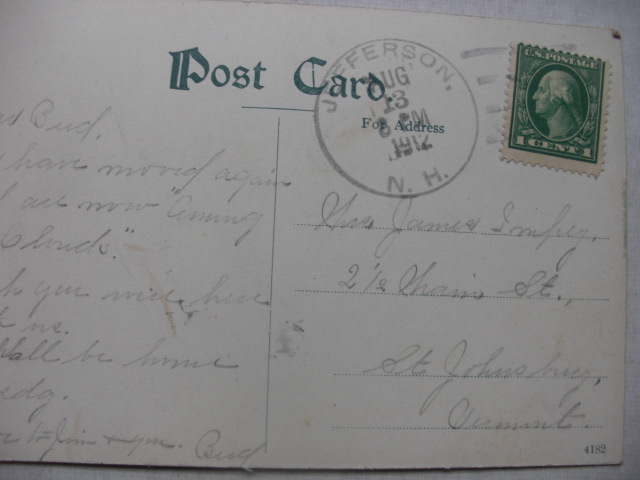 Post Card.
For Address
JEFFERSON,
AUG
13
8 PM
1912
N. H.
U.S. POSTAGE
1 CENT 1
Bud,
have moved again
are now "among
Clouds."
you were here
us.
Shall be home
Wedg.
to Jim & you. Bud
Mrs James Impey,
2 1/2 Main St.,
St Johnsbury,
Vermont.
4182